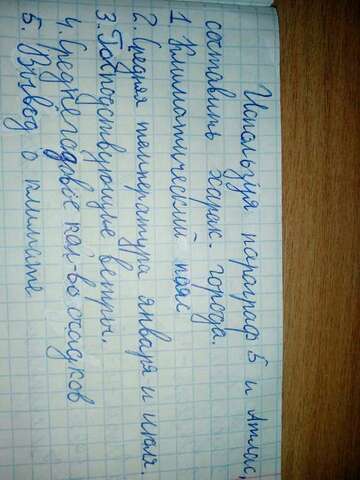 Используя параграф 5 и Атлас,
составить харак. города.
1 Климатический пояс
2. Средняя температура января и июля.
3. Господствующие ветры.
4. Среднегодовое кол-во осадков
5. Вывод о климате